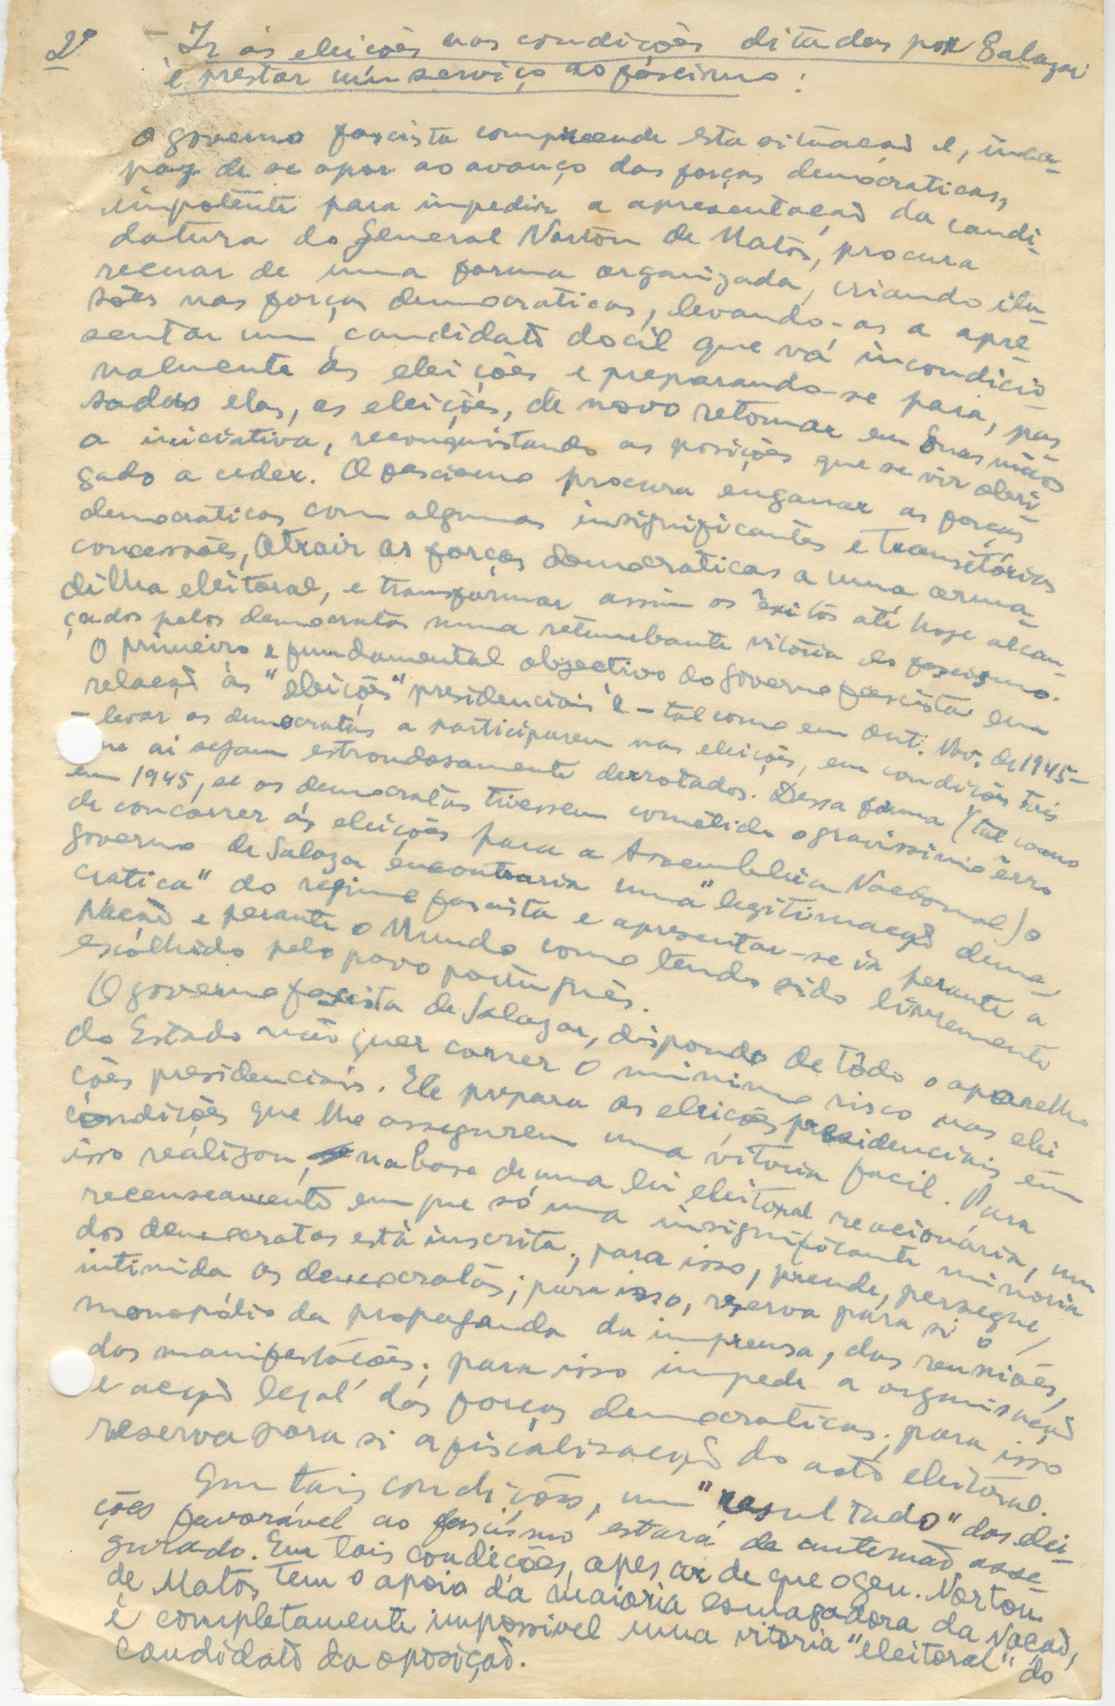 2º - Ir ás eleições nas condições ditadas por Salazar
é prestar um serviço ao fascismo:
O governo fascista compreende esta situação e, inca-
paz de se opor ao avanço das forças democraticas,
impotente para impedir a apresentação da candi-
datura do General Norton de Matos, procura
recuar de uma forma organizada, criando ilu-
sões nas forças democraticas, levando-as a apre-
sentar um candidato docil que vá incondicio-
nalmente ás eleições e preparando-se para, pas-
sadas elas, as eleições, de novo retomar em suas mãos
a iniciativa, reconquistando as posições que se vir obri-
gado a ceder. O fascismo procura enganar as forças
democraticas com algumas insignificantes e transitórias
concessões, atrair as forças democraticas a uma arma-
dilha eleitoral, e transformar assim os exitos até hoje alcan-
çados pelos democratas numa retumbante vitória do fascismo.
O primeiro e fundamental objectivo do governo fascista em
relação às "eleições" presidenciais é - tal como em Out. Nov. de 1945 -
- levar os democratas a participarem nas eleições, em condições tais
que ai sejam estrondosamente derrotados. Dessa forma (tal como
em 1945, se os democratas tivessem cometido o gravissimo êrro
de concorrer ás eleições para a Assembleia Nacional) o
governo de Salazar encontraria uma "legitimação demo-
cratica" do régime fascista e apresentar-se ia perante a
Nação e perante o Mundo como tendo sido livremente
escolhido pelo povo português.
O governo fascista de Salazar, dispondo de tôdo o aparelho
do Estado não quer correr o minimo risco nas elei
ções presidenciais. Ele prepara as eleições presidenciais em
condições que lhe assegurem uma vitoria facil. Para
isso realizou, na base de uma lei eleitoral reacionária, um
recenseamento em que só uma insignificante minoria
dos democratas está inscrita; para isso, prende, persegue,
intimida os democratas; para isso, reserva para si o
monopólio da propaganda da imprensa, das reuniões,
das manifestações; para isso impede a organisação
e acção legal das forças democraticas; para isso
reserva para si a fiscalisação do acto eleitoral.
Em tais condições, um "resultado" das elei-
ções favorável ao fascismo estará de antemão asse-
gurado. Em tais condições, apesar de que o gen. Norton
de Matos tem o apoio da maioria esmagadora da Nação,
é completamente impossivel uma vitoria "eleitoral" do
candidato da oposição.